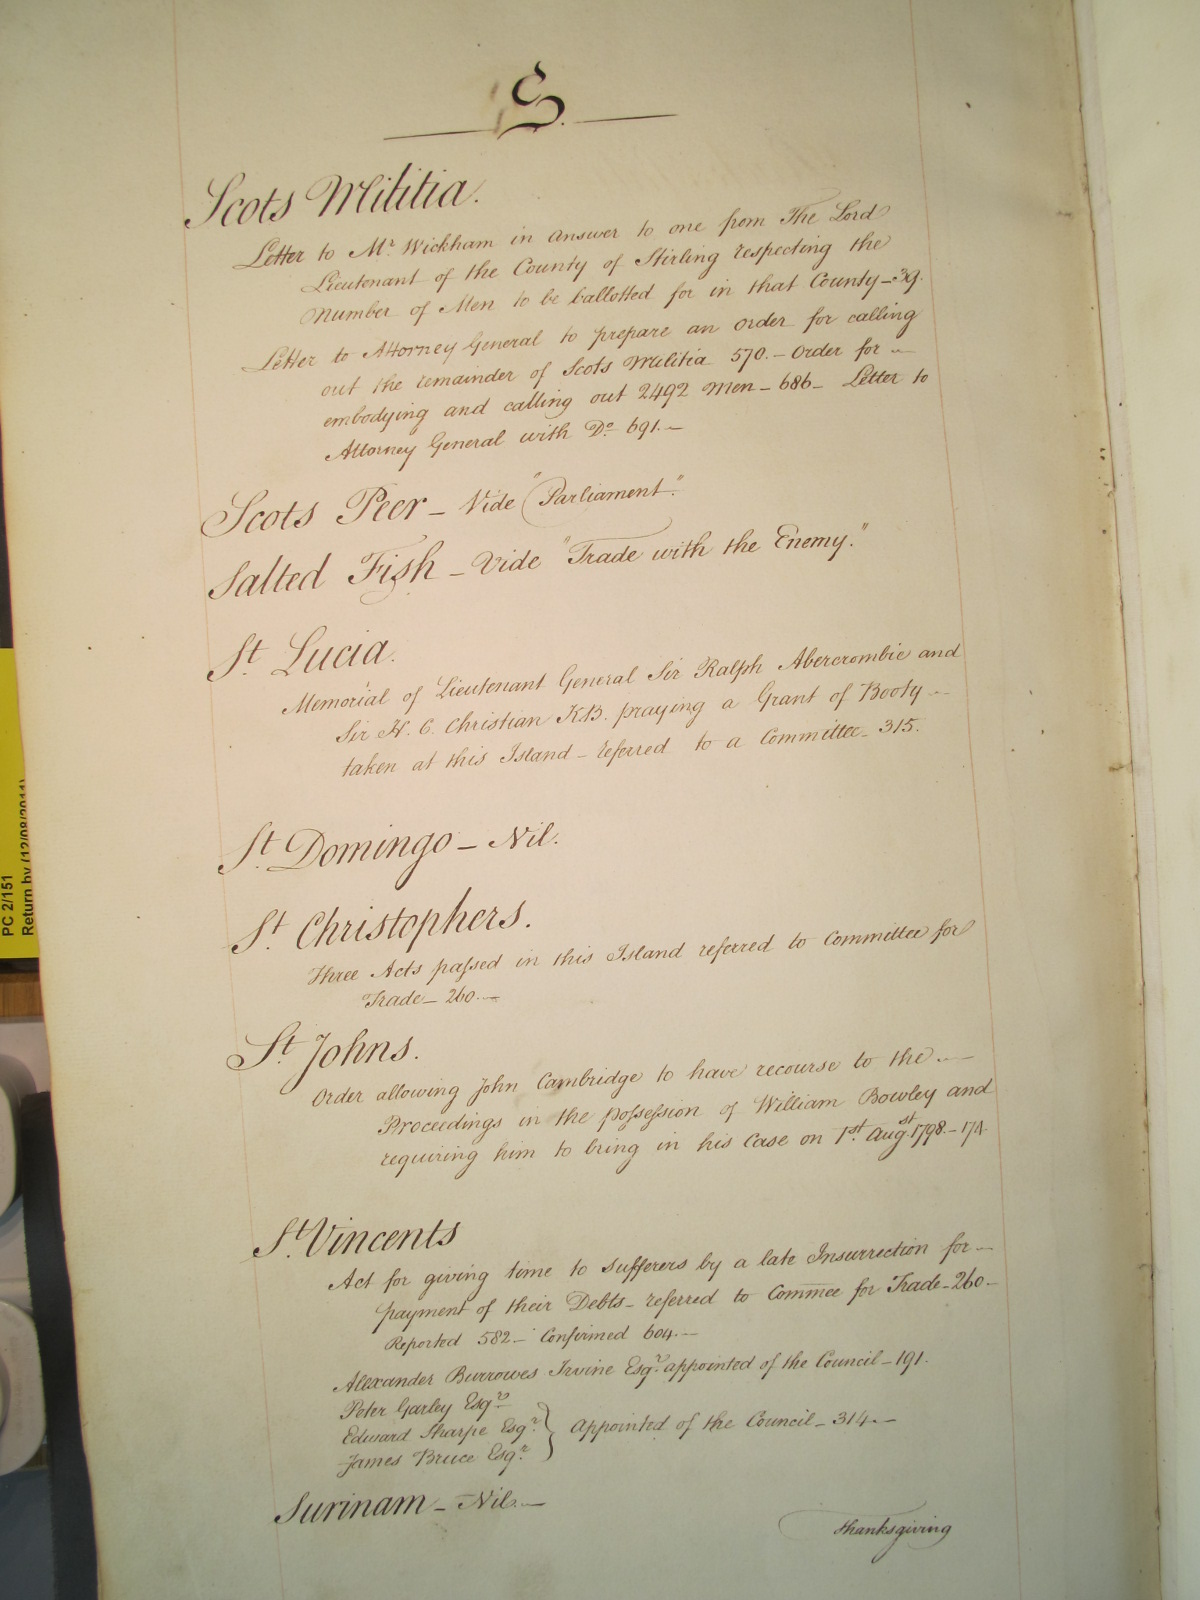 S.
Scots Militia.
Letter to Mr. Wickham in answer to one from The Lord
Lieutenant of the County of Stirling respecting the
number of Men to be ballotted for in that County - 39.
Letter to Attorney General to prepare an order for calling
out the remainder of Scots Militia 570. - Order for -
embodying and calling out 2492 Men - 686 - Letter to
Attorney General with Do. 691. -
Scots Peer - Vide "Parliament."
Salted Fish - Vide "Trade with the Enemy."
St. Lucia.
Memorial of Lieutenant General Sir Ralph Abercrombie and
Sir H. C. Christian K.B. praying a Grant of Booty -
taken at this Island - referred to a Committee - 315.
St. Domingo - Nil.
St. Christophers.
Three Acts passed in this Island referred to Committee for
Trade - 260. -
St. Johns.
Order allowing John Cambridge to have recourse to the -
Proceedings in the possession of William Bowley and
requiring him to bring in his Case on 1st. Augst. 1798. - 174.
St. Vincents
Act for giving time to sufferers by a late Insurrection for -
payment of their Debts - referred to Commee for Trade - 260 -
Reported 582 - Confirmed 604. -
Alexander Burrowes Irvine Esqr. appointed of the Council - 191.
Peter Garley Esqr.
Edward Sharpe Esqr. } appointed of the Council - 314. -
James Bruce Esqr.
Surinam - Nil. -
Thanksgiving
PC 2/151
Return by (12/08/2011)